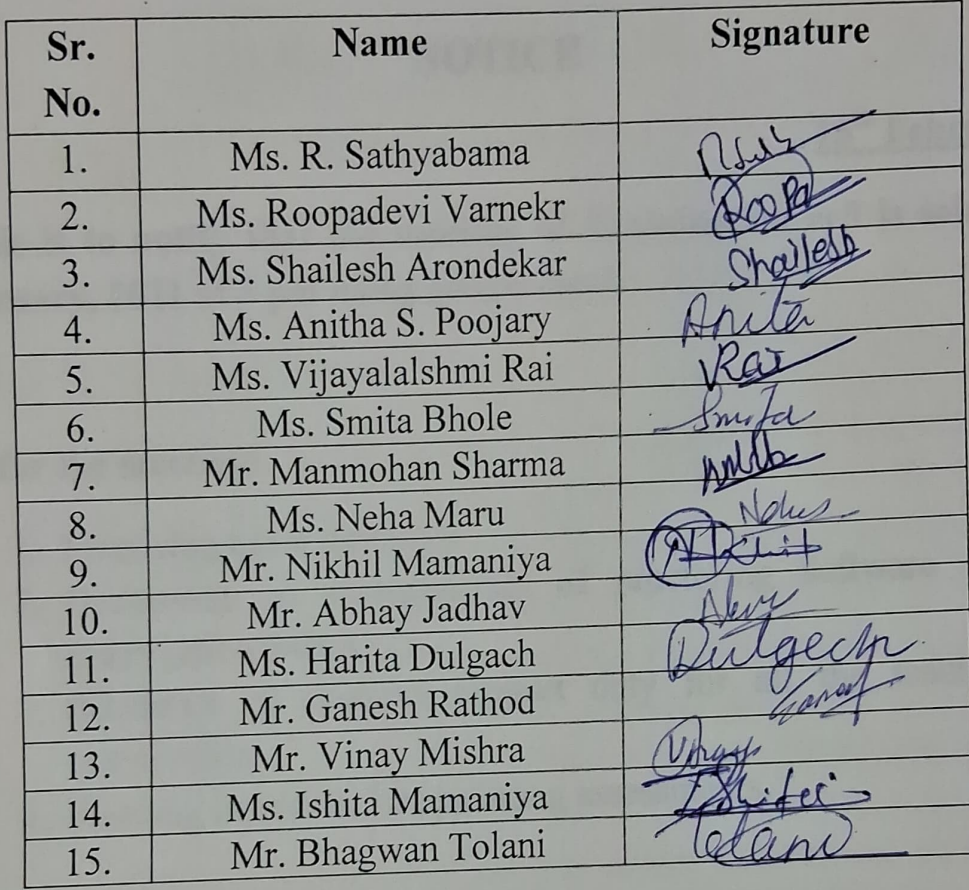 Sr. No. Name Signature
1. Ms. R. Sathyabama
2. Ms. Roopadevi Varnekr Roopa
3. Ms. Shailesh Arondekar Shailesh
4. Ms. Anitha S. Poojary Anita
5. Ms. Vijayalalshmi Rai VRai
6. Ms. Smita Bhole Smita
7. Mr. Manmohan Sharma
8. Ms. Neha Maru
9. Mr. Nikhil Mamaniya
10. Mr. Abhay Jadhav
11. Ms. Harita Dulgach Dulgech
12. Mr. Ganesh Rathod
13. Mr. Vinay Mishra Vinay
14. Ms. Ishita Mamaniya Ishita
15. Mr. Bhagwan Tolani